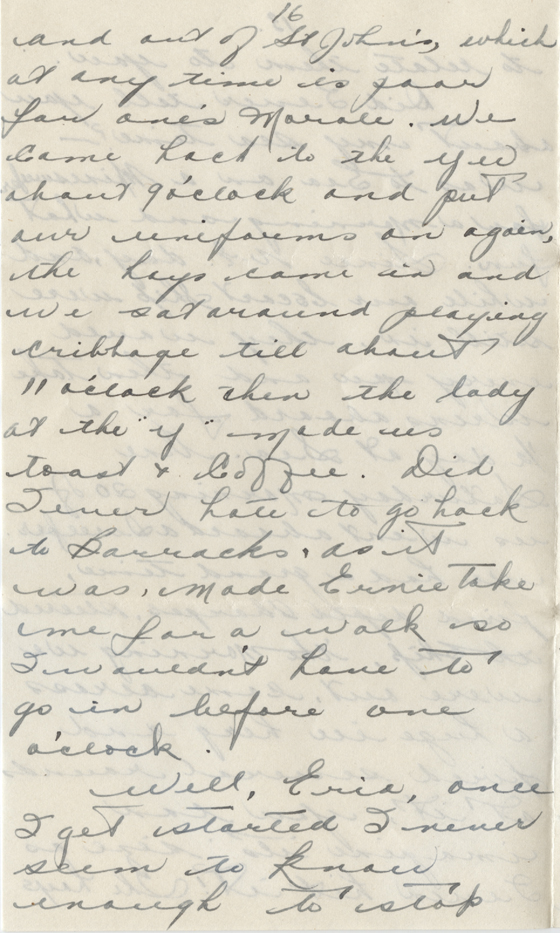 16
and out of St John's, which
at any time is poor
for one's Morale. We
Came back to the "y"
about 9 o'clock and put
our uniforms on again,
the boys came in and
we sat around playing
cribbage till about
11 o'clock then the lady
at the "y" made us
toast & Coffee. Did
I ever hate to go back
to Barracks, as it
was, made Ernie take
me for a walk so
I wouldn't have to
go in before one
o'clock.
Well, Eria, once
I get started I never
seem to know
enough to stop